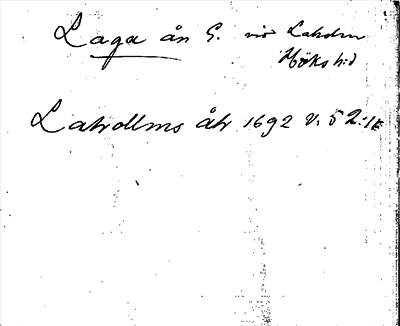 Laga ån G. vid Laholm
Höks hd
Laholms åhr 1692 v. 52.